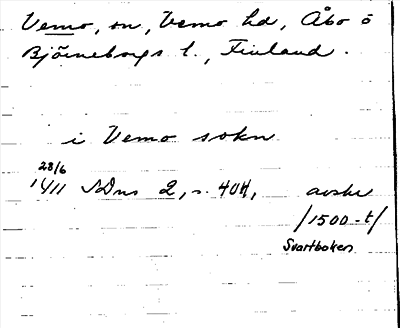 Vemo, sn, Vemo hd, Åbo o
Björneborgs l., Finland.
i Vemo sokn
28/6
1411 SDns 2, s. 404, avskr
/1500-t/
Svartboken